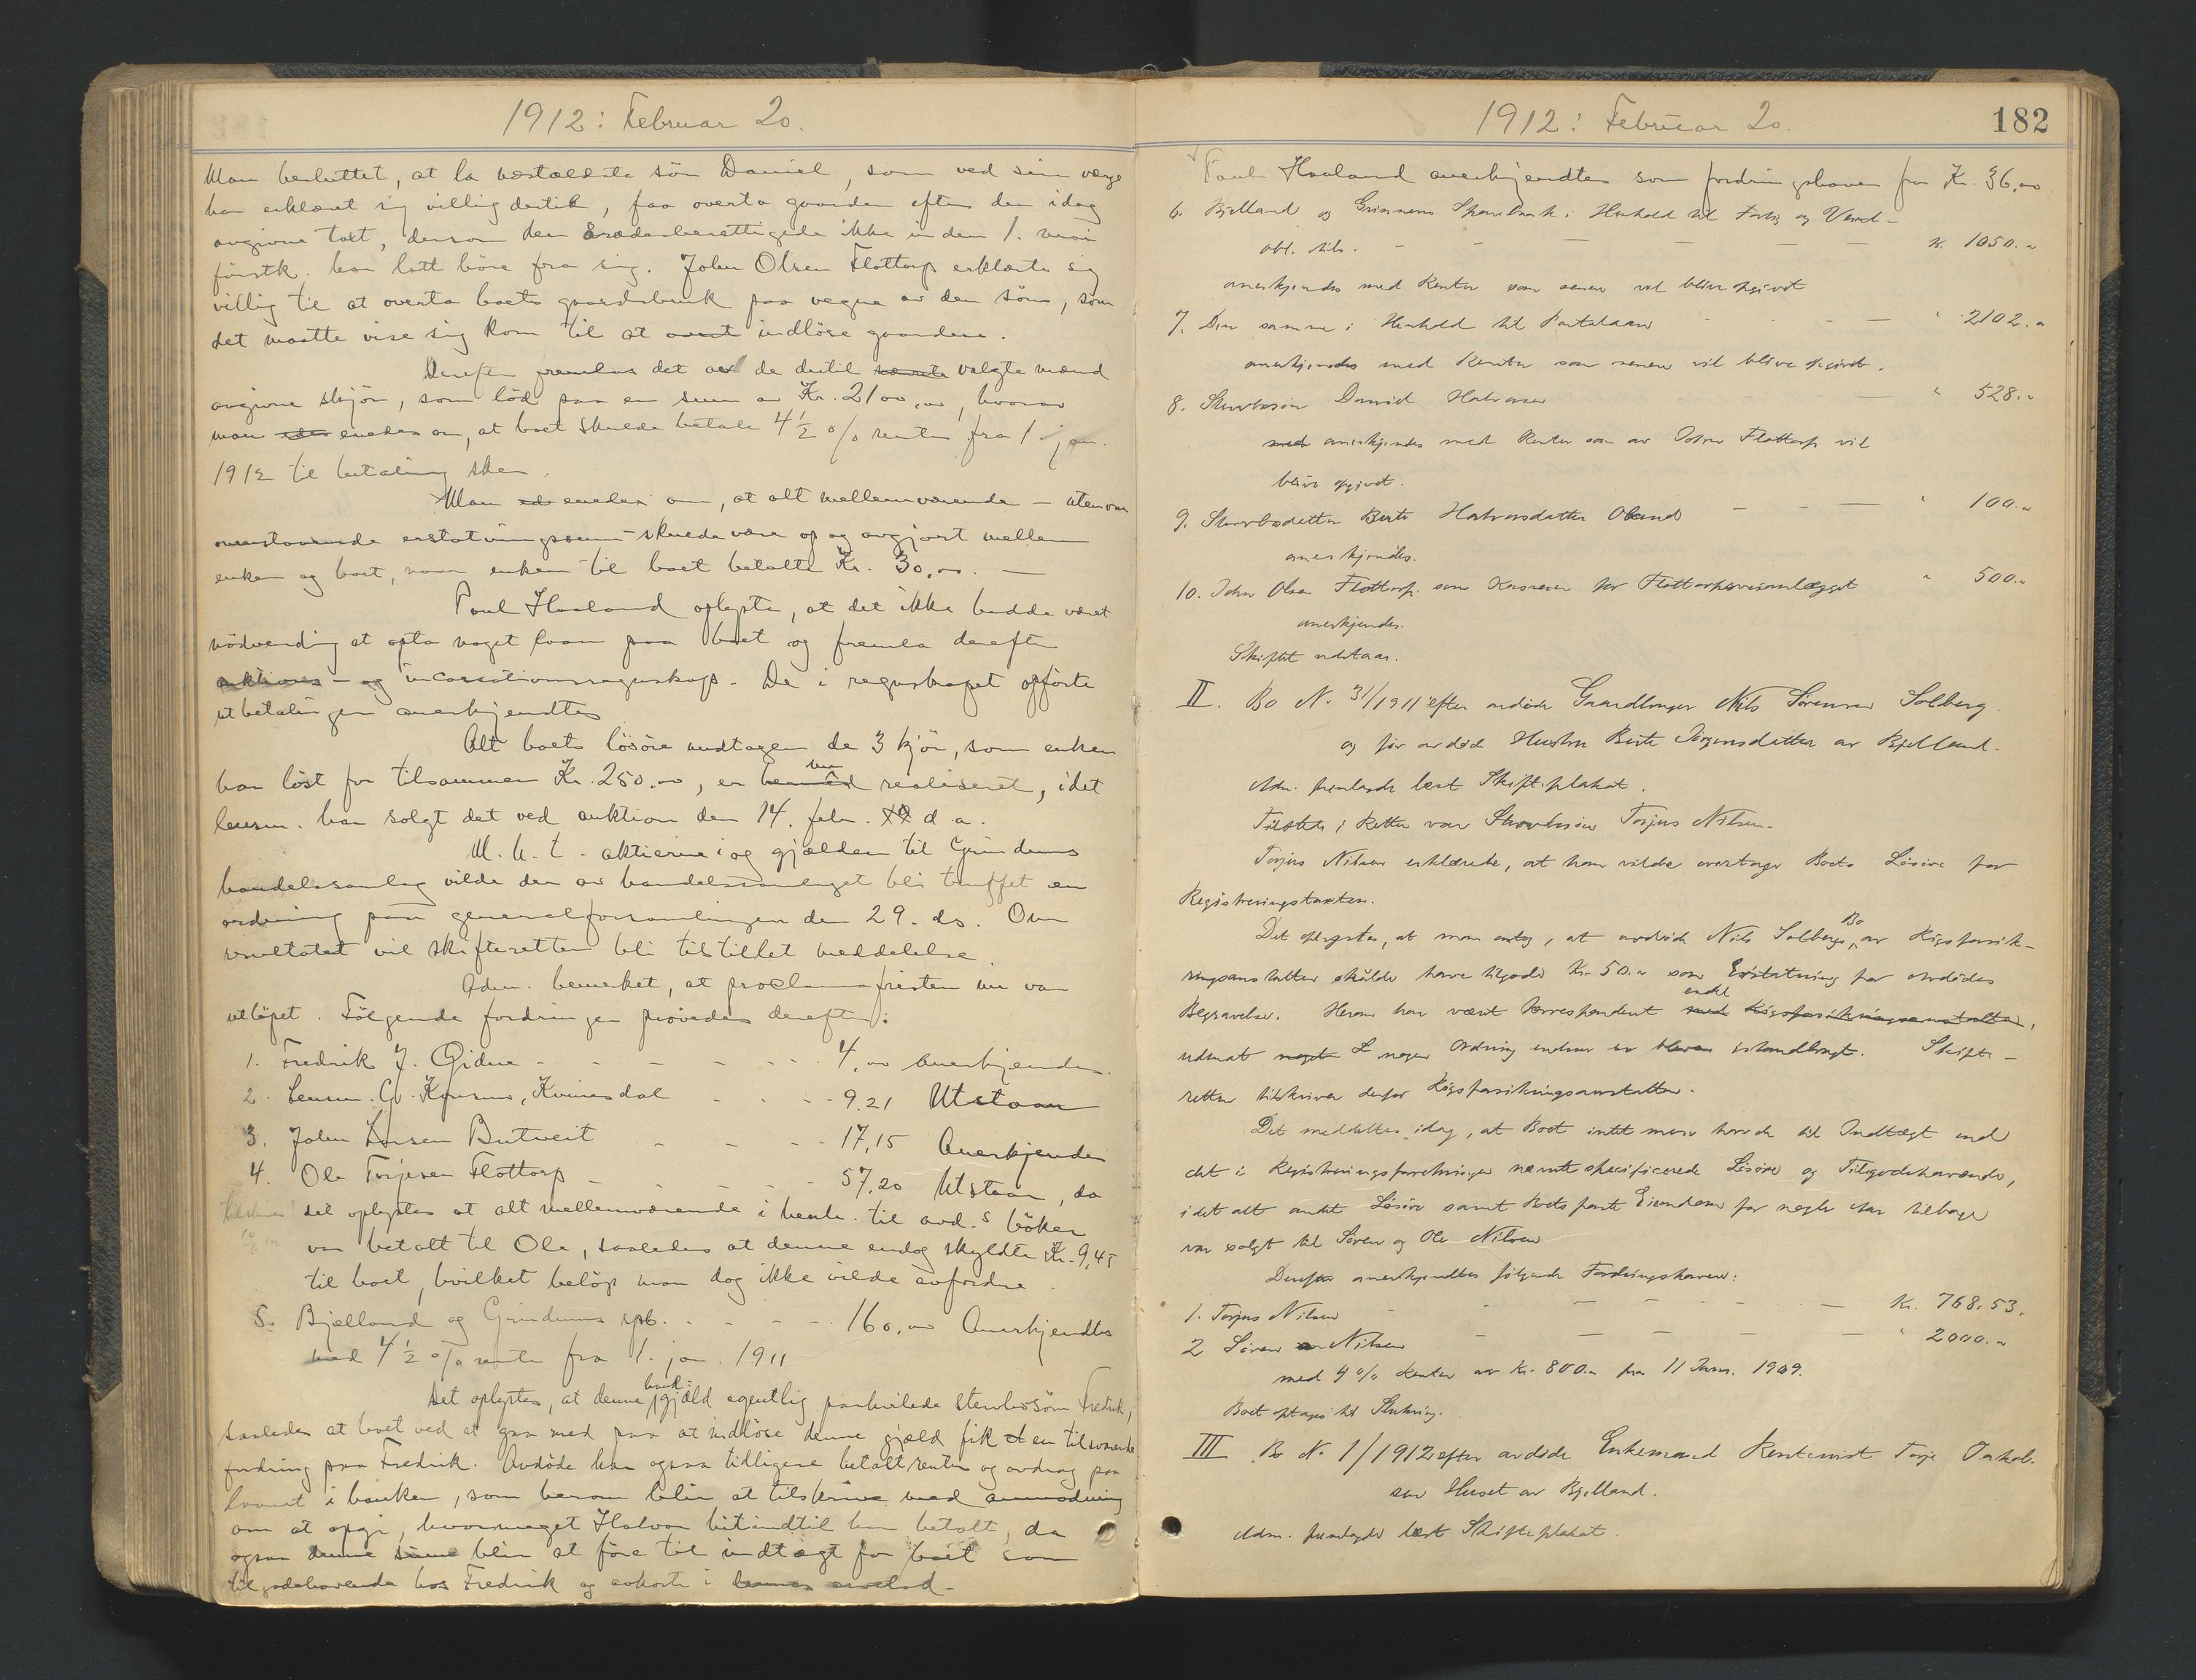 1912: Februar 20.
Man besluttet, at la næstældste sön Daniel, som ved sin verge
har erklæret sig villig dertil, faa overta gaarden efter den idag
avgivne takst, dersom den aasædesberettigede ikke inden 1. mai
förstk. har latt höre fra sig. John Olsen Flottorp erklærte sig
villig til at overta boets gaardsbruk paa vegne av den sön, som
det maatte vise sig kom til at indlöse gaarden.
Derefter fremlas det av de dertil valgte mænd
avgivne skjön, som löd paa en sum av Kr. 2100,00, hvorav
man enedes om, at boet skulde betale 4½ % rente fra 1. jan.
1912 til betaling sker.
Man enedes om, at alt mellemværende – utenom
ovenstaaende erstatningssum – skulde være op og avgjort mellem
enken og boet, naar enken til boet betalte Kr. 30,00. —
Poul Haaland oplyste, at det ikke hadde været
nödvendig at opta noget laan paa boet og fremla derefter
auktions – og incassationsregnskap. De i regnskapet opförte
utbetalinger anerkjendtes
Alt boets lösöre undtagen de 3 kjör, som enken
har löst for tilsammen Kr. 250,00, er nu realiseret, idet
lensm. har solgt det ved auktion den 14. febr. d. a.
M. h. t. aktierne i og gjælden til Grindums
handelssamlag vilde der av handelssamlaget bli truffet en
ordning paa generalforsamlingen den 29. ds. Om
resultatet vil skifteretten bli tilstillet meddelelse.
Adm. bemerket, at proclamafristen nu var
utlöpet. Fölgende fordringer prövedes derefter:
1. Fredrik J. Gidne - - - - - 4,00 Anerkjendes.
2. Lensm. Kvinesdal - - - - 9.21 Utstaar
3. John Larsen Butveit - - - - 17,15 Anerkjendes
4. Ole Torjesen Flottorp - - - - 57,20 Utstaar, da
det oplystes at alt mellemværende i henh. til avd.s böker
var betalt til Ole, saaledes at denne endog skyldte Kr. 9,45
til boet, hvilket belöp man dog ikke vilde avfordre.
5. Bjelland og Grindums spb. - - - - 160,00 Anerkjendtes
med 4½ % rente fra 1. jan. 1911
Det oplystes, at denne bank-gjæld egentlig paahvilede stervbosön Fredrik,
saaledes at boet ved at gaa med paa at indlöse denne gjæld fik en tilsvarende
fordring paa Fredrik. Avdöde har ogsaa tidligere betalt renter og avdrag paa
laanet i banken, som herom blir at tilskrive med anmodning
om at opgi, hvormeget Halvor hitindtil har betalt, da
ogsaa denne blir at före til indtægt for boet som
tilgodehavende hos Fredrik og avkorte i
1912: Februar 20.
182
Poul Haaland anerkjendtes som fordringshaver for Kr. 36,00
6. Bjelland og Grinnems Sparebank i Henhold til og Vexel-
obl. tils. - - - - - Kr. 1050.00
anerkjendes med Renter som senere vil blive opgivet
7. Den samme i Henhold til Pantelaan - - - " 2102.00
anerkjendes med Renter som senere vil blive opgivet.
8. Stervbosön Daniel Halvorsen - " 528.00
anerkjendes med Renter som av John Flottorp vil
blive opgivet.
9. Stervbodatter Berte Halvorsdatter - - - " 100.00
anerkjendes.
10. John Olsen Flottorp som Kasserer for " 500.00
anerkjendes.
Skiftet utstaar.
II. Bo N. 31/1911 efter avdöde Gaardbruger Nils Sörensen Solberg
og för avdöde Hustru Berte Jörgensdatter av Bjelland.
Adm. fremlagde læst Skifteplakat.
Tilstede i Retten var Stervbosön Torjus Nilsen.
Torjus Nilsen erklærede, at han vilde overtage Boets Lösöre for
Registreringstaksten.
Det oplystes, at man antog, at avdöde Nils Solbergs Bo av Rigsforsik-
ringsanstalten skulde have tilgode Kr. 50.00 som Erstatning for avdödes
Begravelse. Herom har været korrespondert endel med Rigsforsikringsanstalten,
uten at nogen Ordning endnu er istandbragt. Skifte-
retten tilskriver derfor Rigsforsikringsanstalten.
Det meddeltes idag, at Boet intet mere havde til Indtægt end
det i Registreringsforretningen nævnte specificerede Lösöre og Tilgodehavende,
idet alt andet Lösöre samt Boets faste Eiendom for nogle Aar tilbage
var solgt til Sören og Ole Nilsen
Derefter anerkjendtes fölgende Fordringshavere:
1. Torjus Nilsen - - - - - Kr. 768.53.
2 Sören Nilsen - - - - - " 2000.00
med 4 % Renter av Kr. 800.00 fra 11 Janr. 1909.
Boet optages til Slutning.
III Bo N. 1/1912 efter avdöde Enkemand Rentenist Torje Jakob-
sen Huset av Bjelland.
Adm. fremlagde læst Skifteplakat.